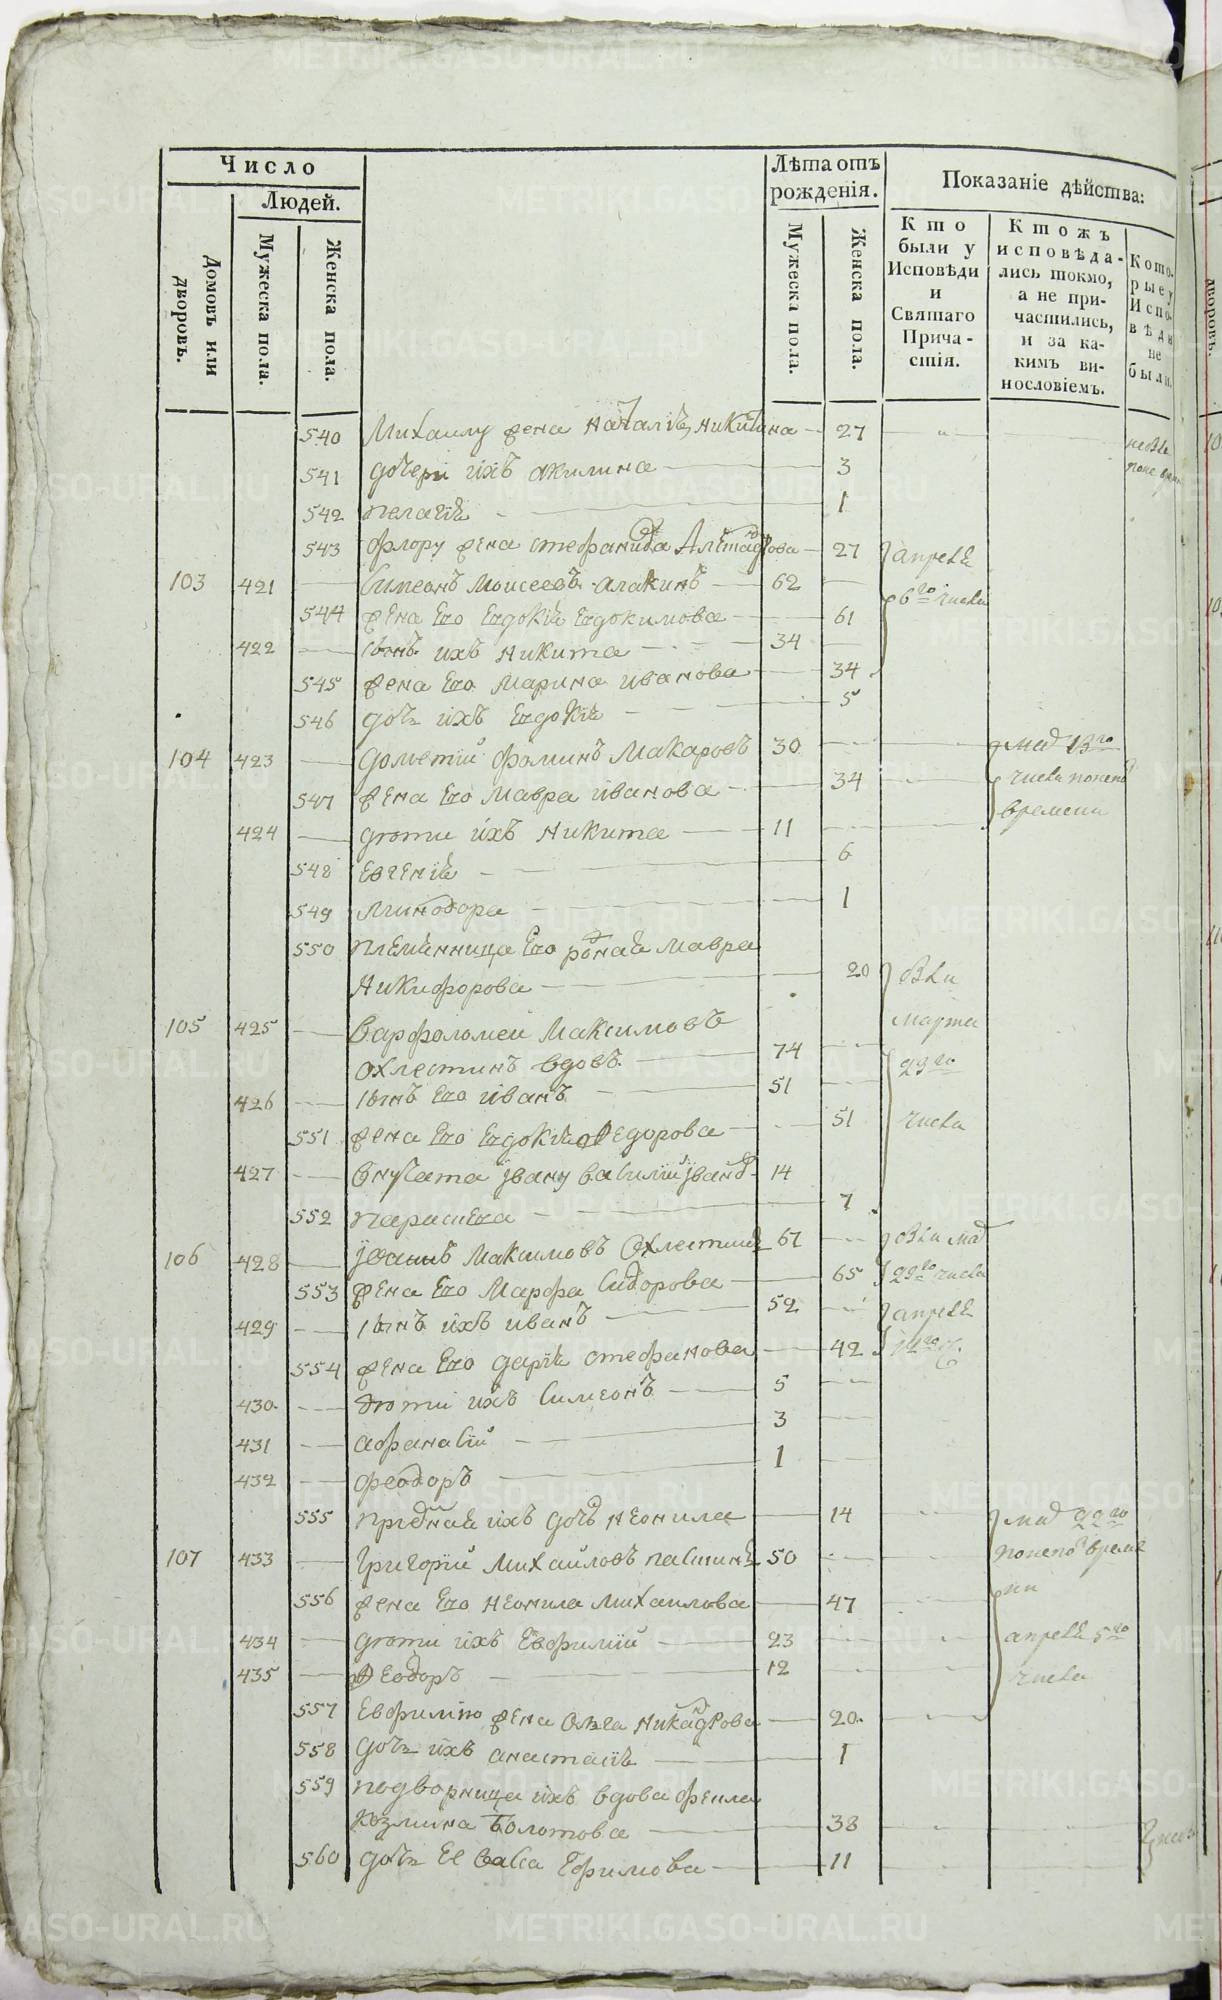 Число
Людей.
Домовъ или дворовъ.
Мужеска пола.
Женска пола.
Лѣта отъ рожденія.
Мужеска пола.
Женска пола.
Показаніе дѣйства:
Кто были у Исповѣди и Святаго Причастія.
Ктожъ исповѣдались токмо, а не причастились, и за какимъ винословіемъ.
Которые у Исповѣди не были.
540 Михаилу жена Наталія Никитина 27
541 дочери ихъ акилина 3
542 пелагія 1
543 Флору жена стефанида 27 апреля
103 421 Симеонъ Моисеевъ Алакинъ 62 6го числа
544 жена Его Евдокія Евдокимова 61
422 сынъ ихъ Никита 34
545 жена Его Марина иванова 34
546 дочь ихъ Евдокія 5
104 423 Дометий Фоминъ Макаровъ 30 маія 13го
547 жена Его Мавра иванова 34 числа
424 дѣти ихъ Никита 11 времени
548 Евгенія 6
549 Минодора 1
550 племянница Его родная Мавра
Никифорова 20
105 425 Варфоломей Максимовъ марта
Охлестинъ вдовъ 74 29го
426 сынъ Его иванъ 51
551 жена Его Евдокія Федорова 51 числа
427 внучата ивану василий 14
552 параскева 7
106 428 Иоаннъ Максимовъ Охлестинъ 67
553 жена Его Марфа Сидорова 65 29го числа
429 сынъ ихъ иванъ 52 апреля
554 жена Его дарія стефанова 42
430 дѣти ихъ Симеонъ 5
431 афанасій 3
432 феодоръ 1
555 ихъ дочь неонила 14 маія 22го
107 433 Григорій Михайловъ 50
556 жена Его Неонила Михаилова 47
434 дѣти ихъ Евфимий 23 апреля 5го
435 Феодоръ 12 числа
557 Евфимию жена Олга 20
558 дочь ихъ анастасія 1
559 подворница ихъ вдова
козмина Болотова 38
560 дочь Ее васса Ефимова 11
METRIKI.GASO-URAL.RU